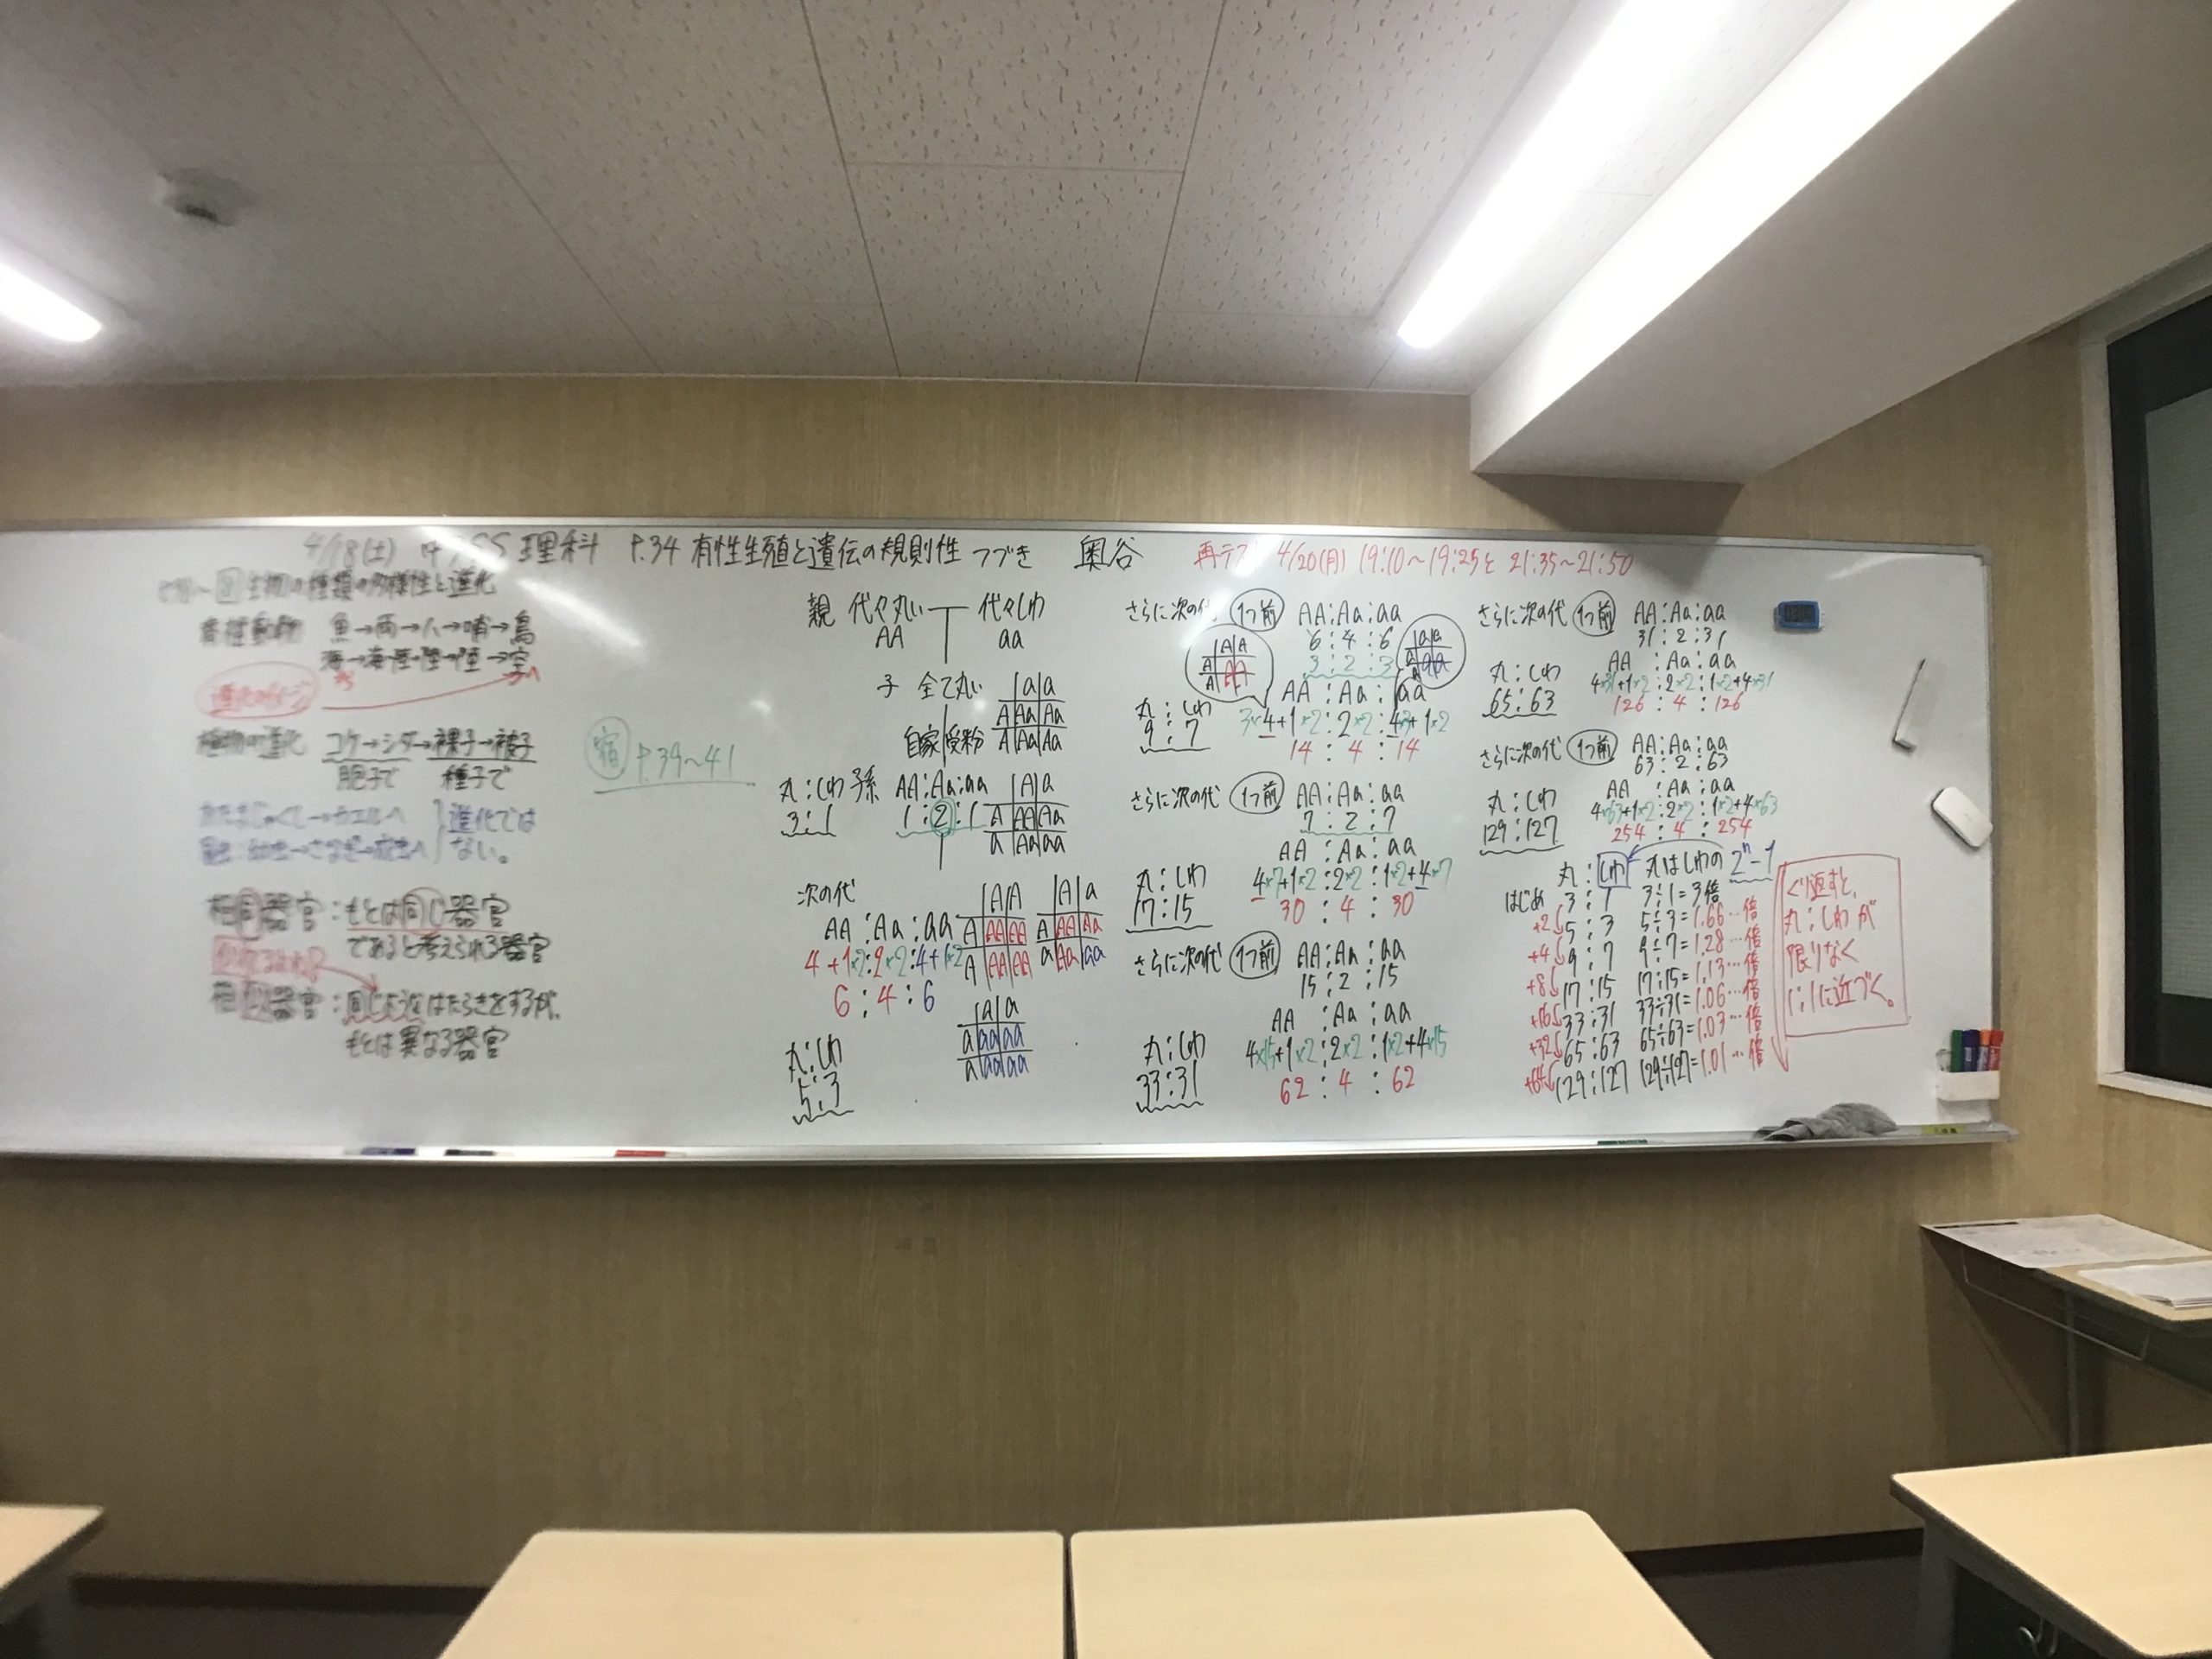 4/18(土) 中3SS 理科 P.34 有性生殖と遺伝の規則性 つづき 奥谷
再テスト 4/20(月) 19:10～19:25と 21:35～21:50
生物の種類の多様性と進化
魚→両→ハ→哺→鳥
植物の進化 コケ→シダ→裸子→被子
胞子で 種子で
おたまじゃくし→カエルへ
進化では
ない。
相同器官:もとは同じ器官
であると考えられる器官
相似器官:同じようなはたらきをするが、
もとは異なる器官
宿 P.39～41
親 代々丸い 代々しわ
AA aa
子 全て丸い
a a
A Aa Aa
A Aa Aa
自家受粉
丸:しわ
3:1
孫 AA:Aa:aa
1:2:1
A a
A AA Aa
a Aa aa
次の代
AA:Aa:aa
4+1×2:2×2:4+1×2
6:4:6
A A
A AA AA
A AA AA
A a
A AA Aa
a Aa aa
a a
a aa aa
a aa aa
丸:しわ
5:3
さらに次の代 1つ前 AA:Aa:aa
6:4:6
3:2:3
A A
A AA
A
a a
a aa
AA:Aa:aa
3×4+1×2:2×2:4×3+1×2
14:4:14
丸:しわ
9:7
さらに次の代 1つ前 AA:Aa:aa
7:2:7
AA:Aa:aa
4×7+1×2:2×2:1×2+4×7
30:4:30
丸:しわ
17:15
さらに次の代 1つ前 AA:Aa:aa
15:2:15
AA:Aa:aa
4×15+1×2:2×2:1×2+4×15
62:4:62
丸:しわ
33:31
さらに次の代 1つ前 AA:Aa:aa
31:2:31
AA:Aa:aa
4×31+1×2:2×2:1×2+4×31
126:4:126
丸:しわ
65:63
さらに次の代 1つ前 AA:Aa:aa
63:2:63
AA:Aa:aa
4×63+1×2:2×2:1×2+4×63
254:4:254
丸:しわ
129:127
丸:しわ 丸はしわの 2ⁿ-1
はじめ 3:1 3÷1=3倍
+2 5:3 5÷3=1.66…倍
+4 9:7 9÷7=1.28…倍
+8 17:15 17÷15=1.13…倍
+16 33:31 33÷31=1.06…倍
+32 65:63 65÷63=1.03…倍
+64 129:127 129÷127=1.01…倍
くり返すと、
丸:しわが
限りなく
1:1に近づく。